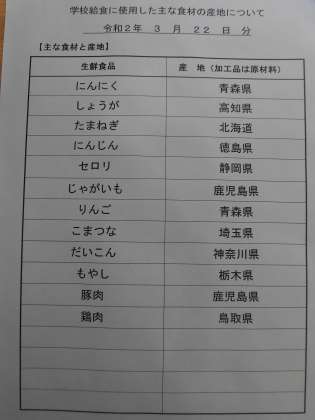 学校給食に使用した主な食材の産地について
令和２年 ３ 月 ２２ 日 分
【主な食材と産地】
生鮮食品 産 地（加工品は原材料）
にんにく 青森県
しょうが 高知県
たまねぎ 北海道
にんじん 徳島県
セロリ 静岡県
じゃがいも 鹿児島県
りんご 青森県
こまつな 埼玉県
だいこん 神奈川県
もやし 栃木県
豚肉 鹿児島県
鶏肉 鳥取県